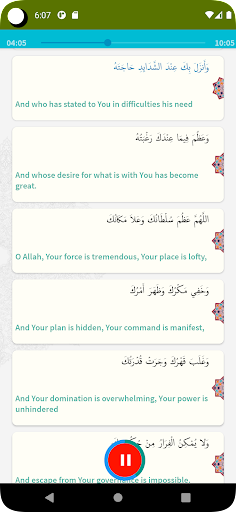 6:07
04:05
10:05
وَأَنْزَلَ بِكَ عِنْدَ الشَّدَايِدِ حَاجَتَهُ
And who has stated to You in difficulties his need
وَعَظُمَ فِيمَا عِنْدَكَ رَغْبَتُهُ
And whose desire for what is with You has become
great.
اَللَّهُمَّ عَظُمَ سُلْطَانُكَ وَعَلَا مَكَانُكَ
O Allah, Your force is tremendous, Your place is lofty,
وَخَفِيَ مَكْرُكَ وَظَهَرَ أَمْرُكَ
And Your plan is hidden, Your command is manifest,
وَغَلَبَ قَهْرُكَ وَجَرَتْ قُدْرَتُكَ
And Your domination is overwhelming, Your power is
unhindered
وَلَا يُمْكِنُ الْفِرَارُ مِنْ
And escape from Your governance is impossible.